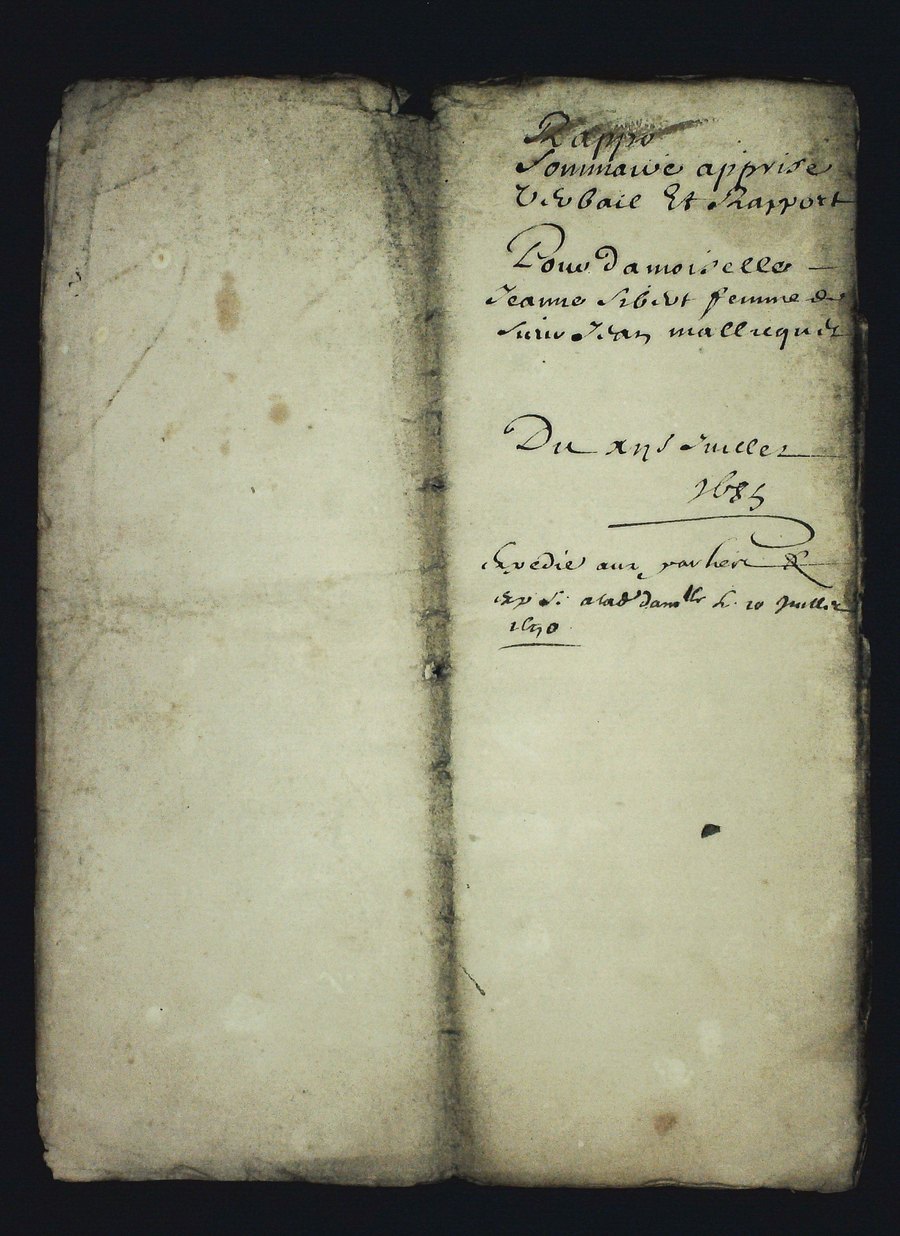 Rappo
Sommaire apprise
Verbail Et Rapport
Pour Damoiselle
Jeanne Sibert femme de
Sieur Jean mallicquet
Du xijs Juillet
1685
Expedié aux parties
exp si a lad damlle le 10 Juillet
1690